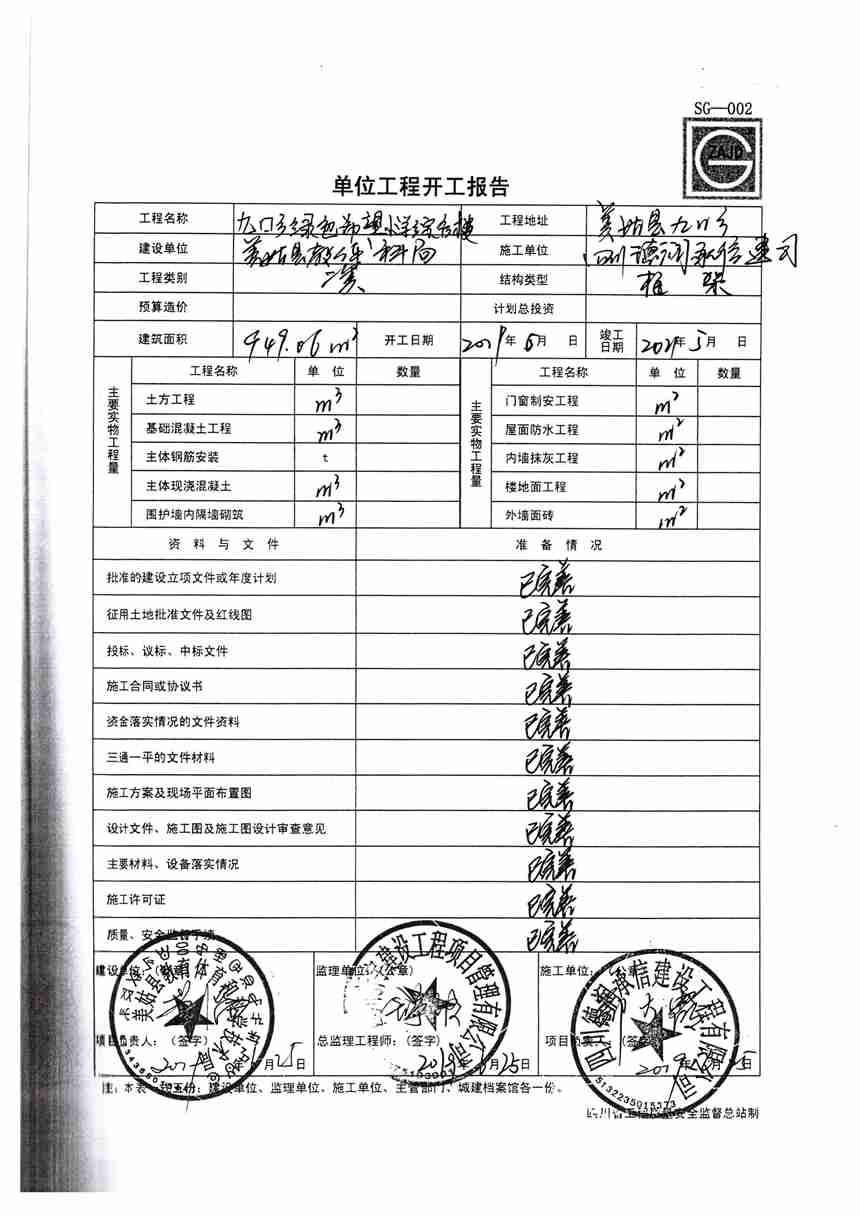 SG—002
ZAJD
单位工程开工报告
工程名称 九口乡绿色希望小学综合楼 工程地址 美姑县九口乡
建设单位 美姑县教体科局 施工单位 四川德润承信建司
工程类别 二类 结构类型 框架
预算造价 计划总投资
建筑面积 949.06m² 开工日期 2019年6月 日 竣工日期 年5月 日
主要实物工程量 工程名称 单位 数量 主要实物工程量 工程名称 单位 数量
土方工程 m³ 门窗制安工程 m²
基础混凝土工程 m³ 屋面防水工程 m²
主体钢筋安装 t 内墙抹灰工程 m²
主体现浇混凝土 m³ 楼地面工程 m²
围护墙内隔墙砌筑 m³ 外墙面砖 m²
资料与文件 准备情况
批准的建设立项文件或年度计划 已完善
征用土地批准文件及红线图 已完善
投标、议标、中标文件 已完善
施工合同或协议书 已完善
资金落实情况的文件资料 已完善
三通一平的文件材料 已完善
施工方案及现场平面布置图 已完善
设计文件、施工图及施工图设计审查意见 已完善
主要材料、设备落实情况 已完善
施工许可证 已完善
质量、安全监督手续 已完善
建设单位：（公章） 监理单位：（公章） 施工单位：（公章）
美姑县教育体育和科学技术局
建设工程项目管理有限公司
四川德润承信建设工程有限公司
5132235015373
项目负责人：（签字） 总监理工程师：（签字） 项目负责人：（签字）
月25日 2019年 月25日 2019年 月25日
注：本表一式五份：建设单位、监理单位、施工单位、主管部门、城建档案馆各一份。
四川省工程质量安全监督总站制